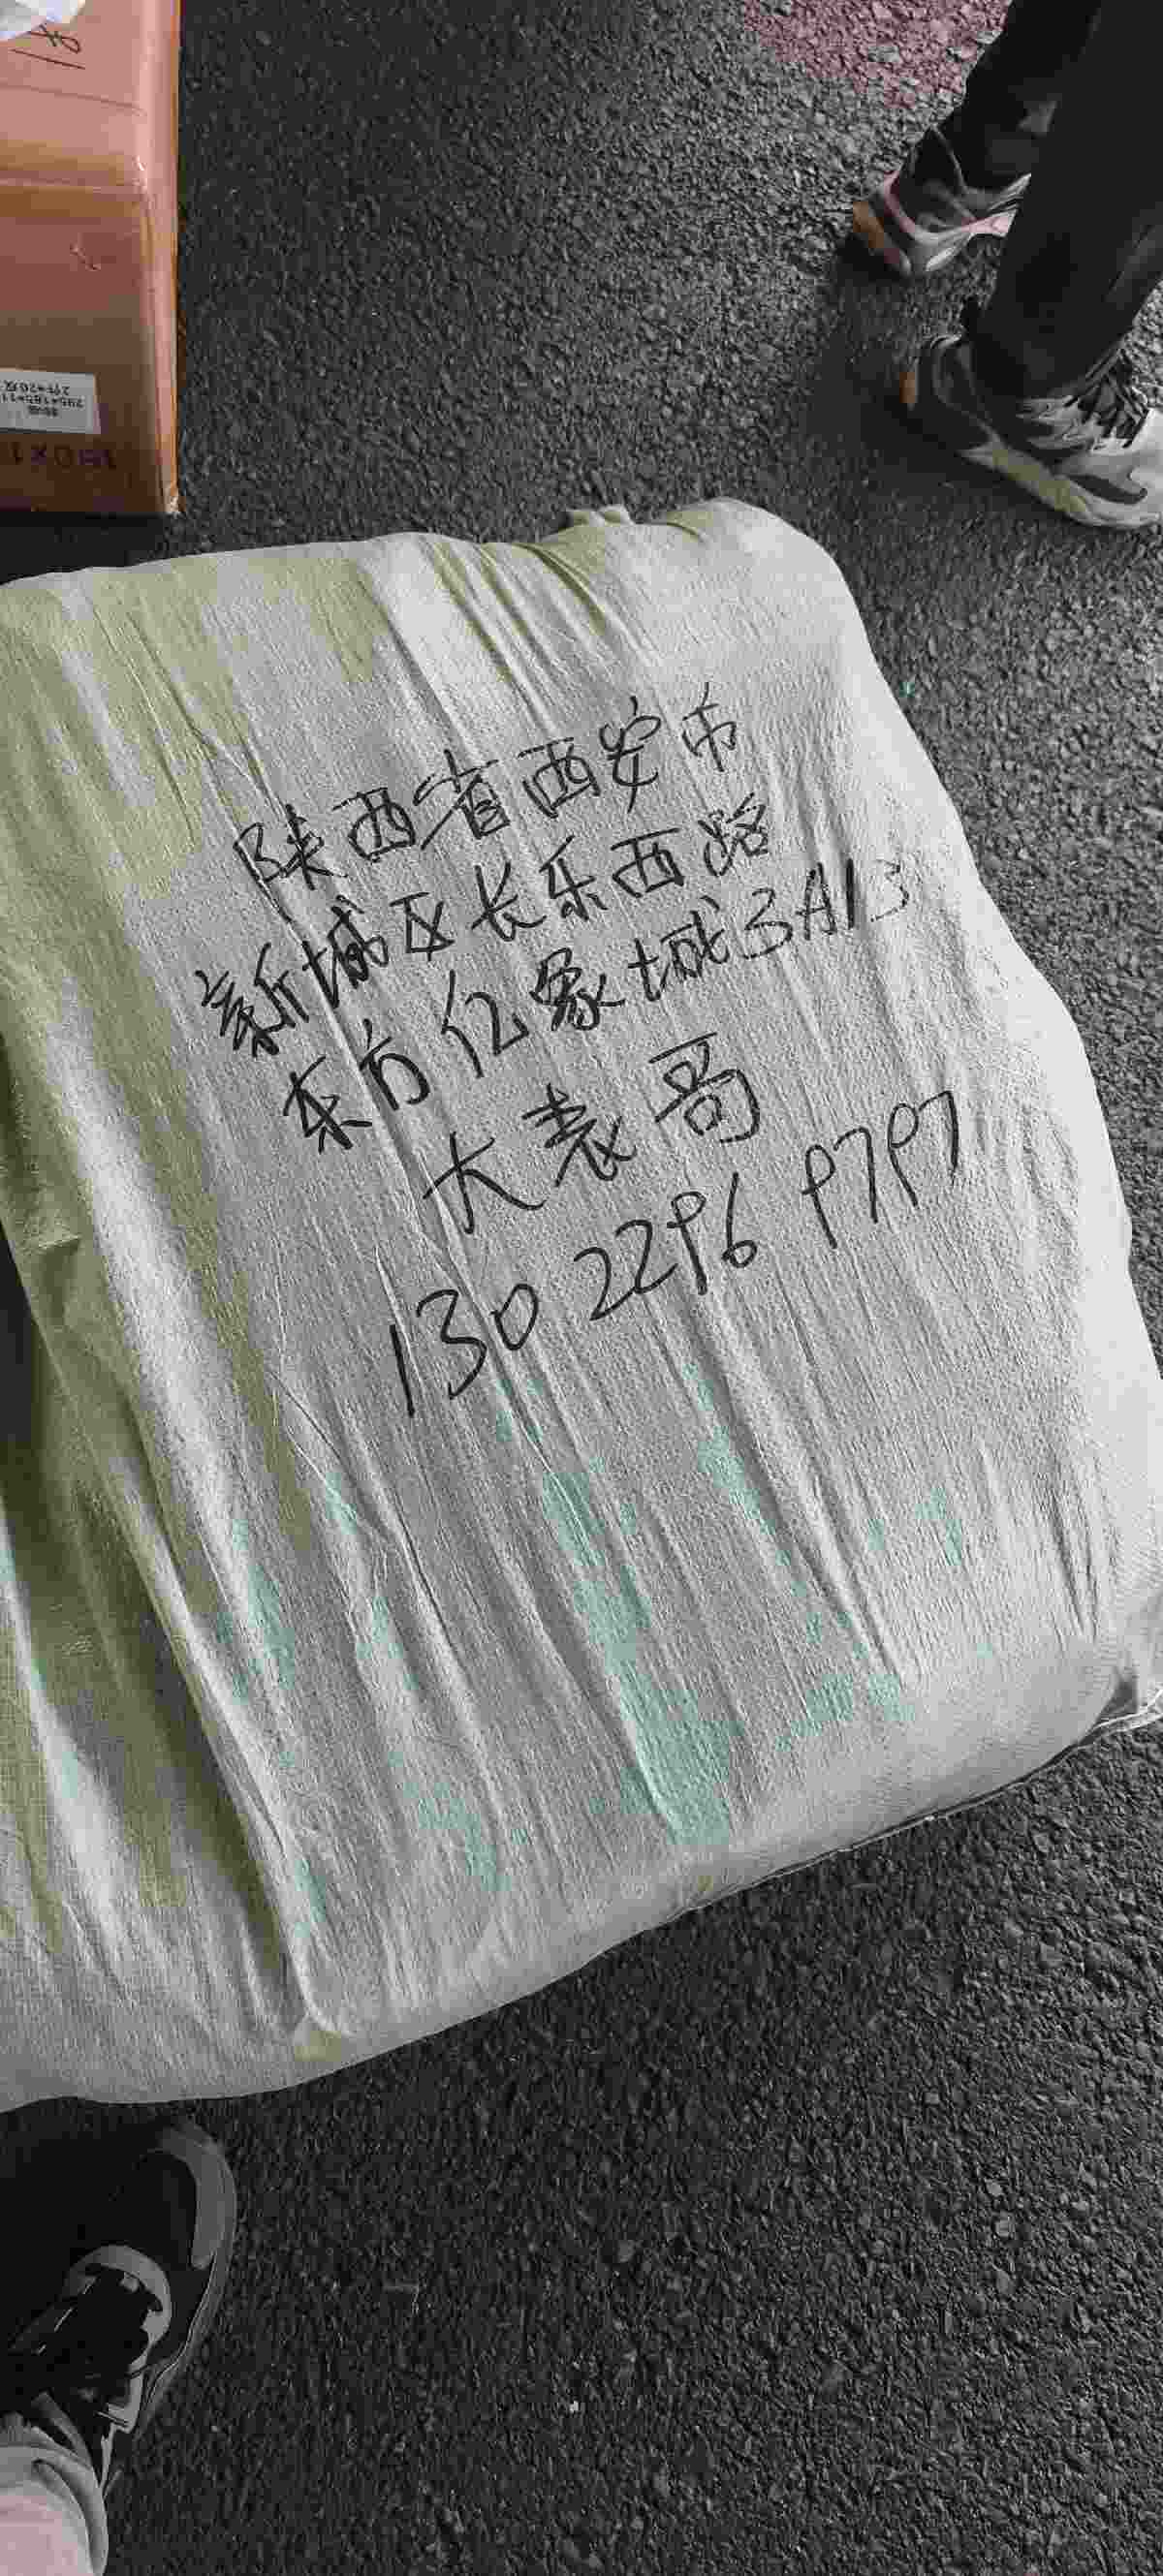 陕西省西安市
新城区长乐西路
东方亿象城3A13
大表哥
130 2296 9797